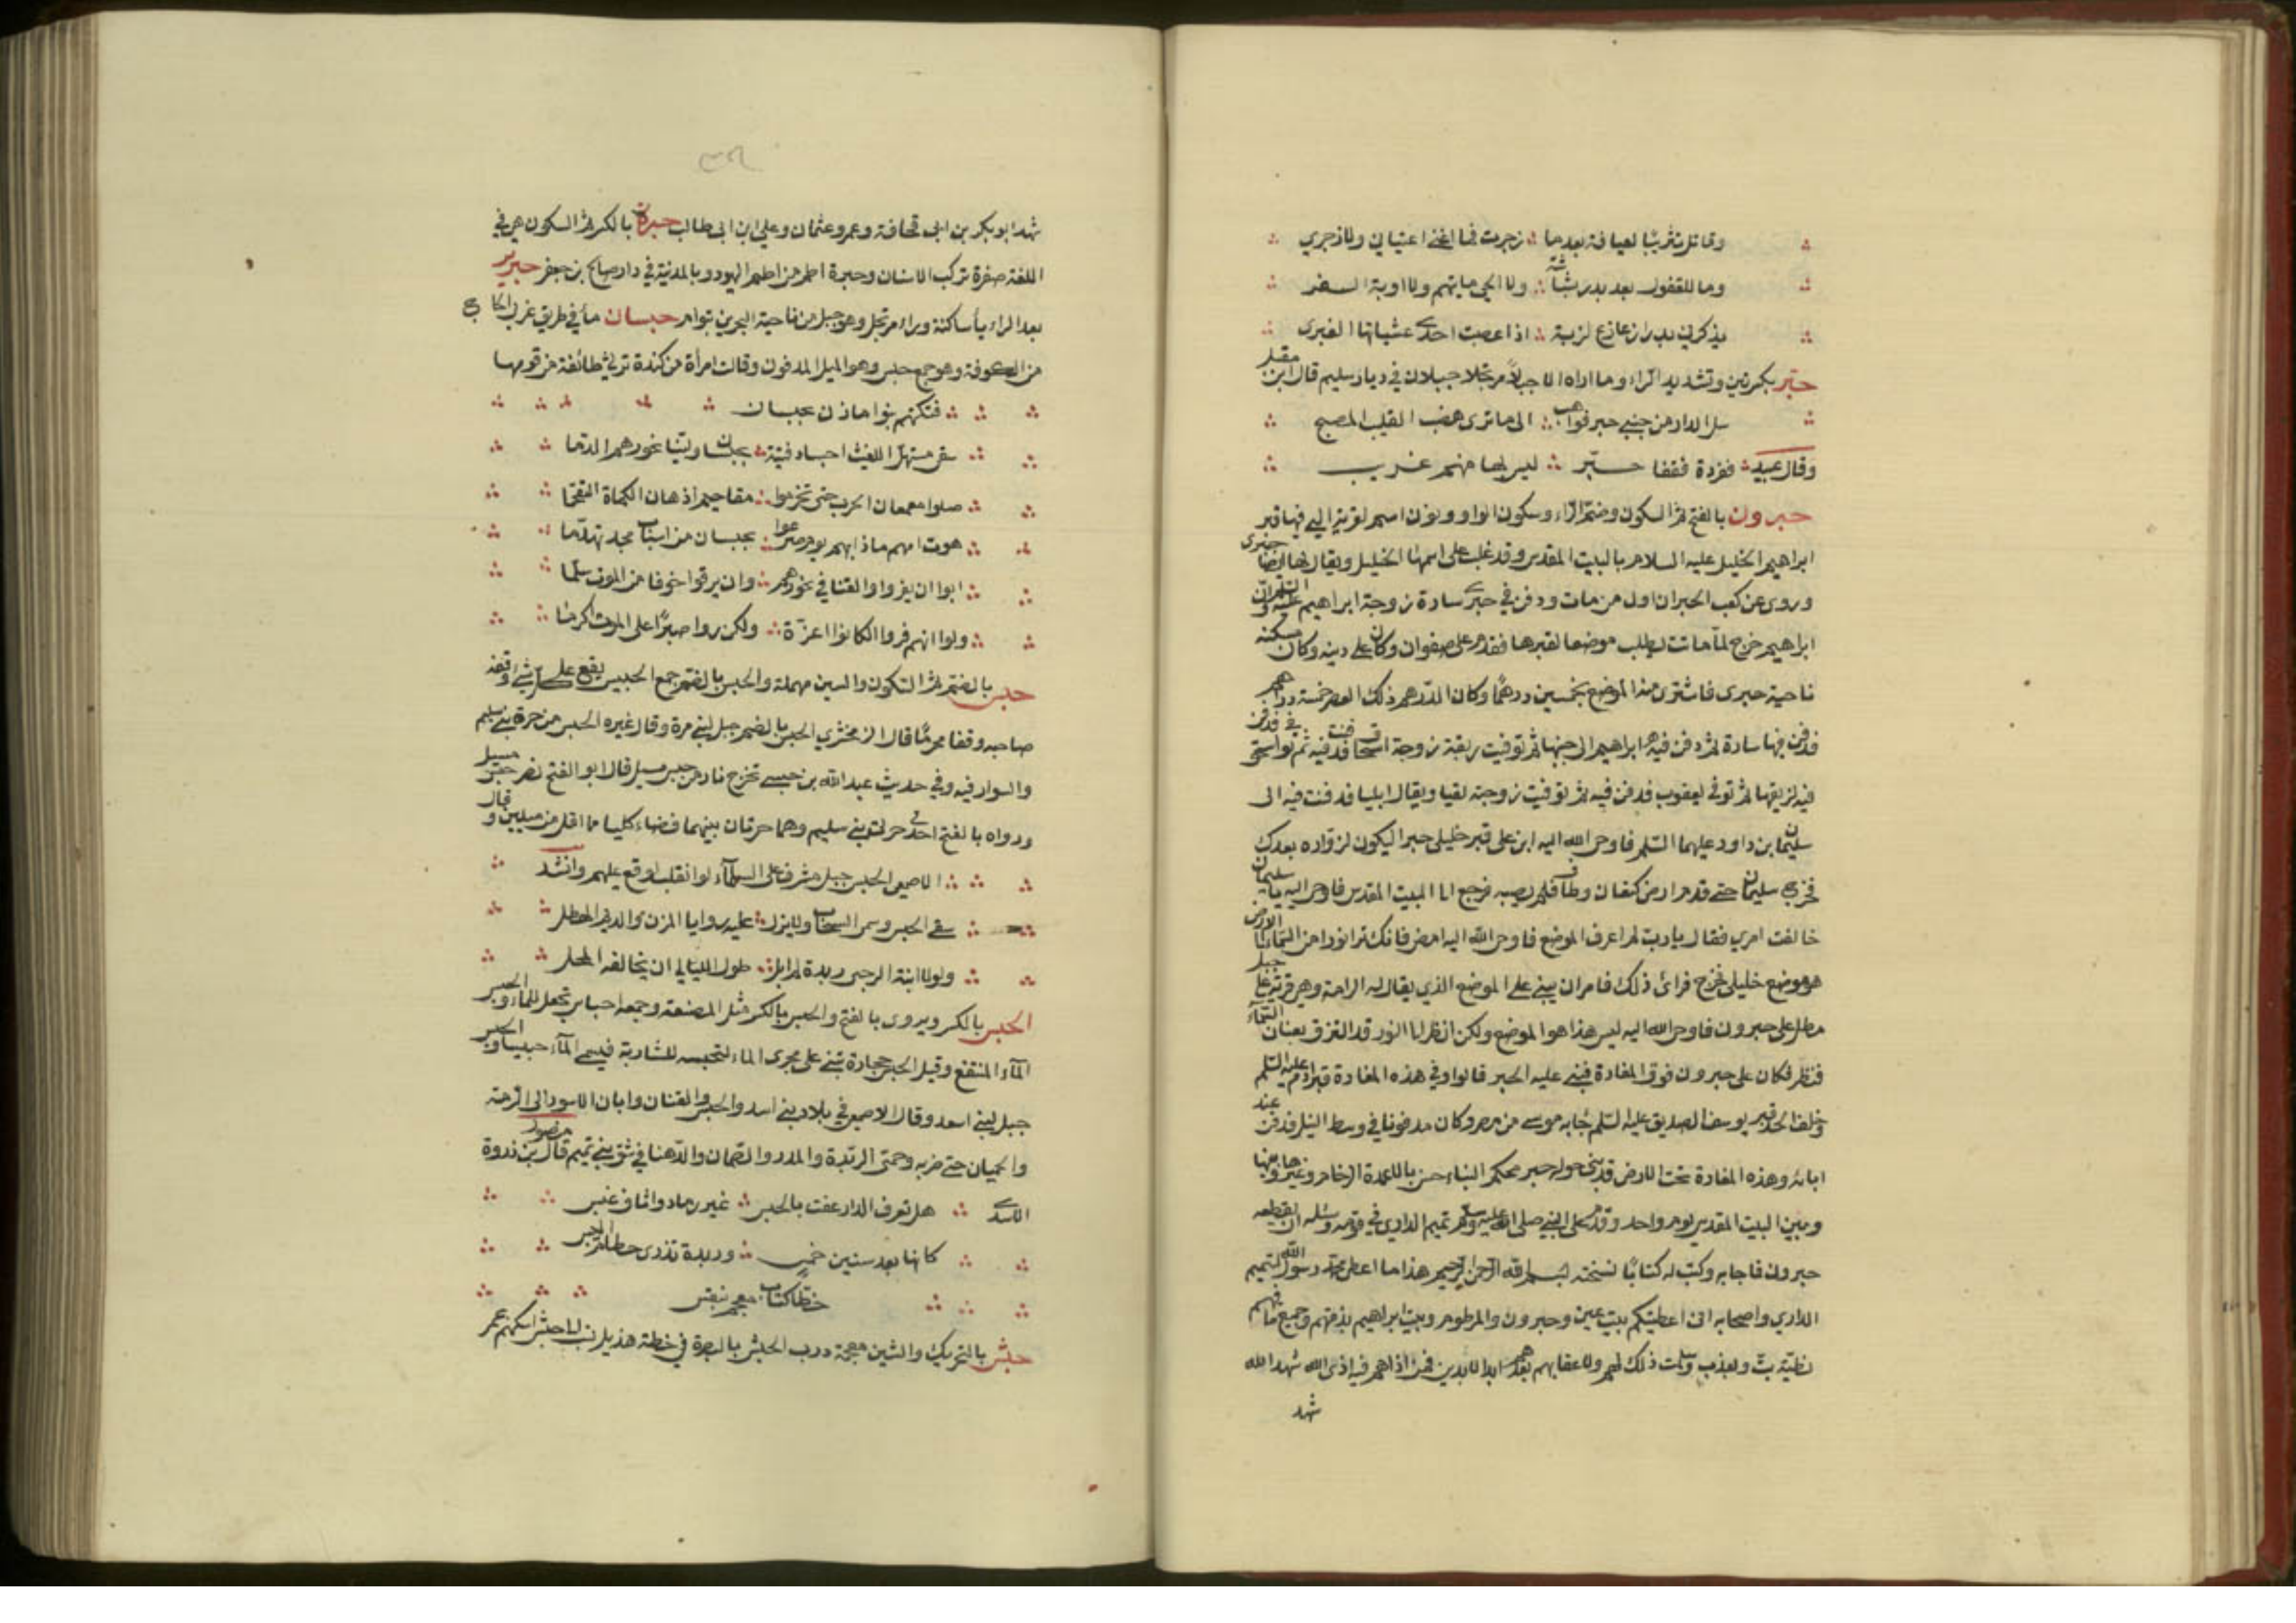 وقائلة تنريبا لعيافة بعدها زجرت فما اغنى اعتيافي ولا زجري
وما للقفول بعد بدر بشاشة ولا الحي ماتيهم ولا اوبة السفر
يذكرني بدرا زعازع لزبة اذا اعصبت احدى عشياتها الغبرى
حبر بكسرتين وتشديد الراء وما اراه الا جبلا مرتجلا جبلان في ديار سليم قال ابن مقبل
سل الدار من جنبي حبر فواهب الى ما ترى هضب القليب المصبح
وقال عبيد فغردة فقفا حبر ليس لها منهم غريب
حبرون بالفتح ثم السكون وضم الراء وسكون الواو ونون اسم لقرية التي فيها قبر
ابراهيم الخليل عليه السلام بالبيت المقدس وقد غلب على اسمها الخليل ويقال لها ايضا حبرى
وروى عن كعب الحبر ان اول من مات ودفن في حبرى سارة زوجة ابراهيم عليه السلم وان
ابراهيم خرج لما ماتت يطلب موضعا لقبرها فقدم على صفوان وكان على دينه وكان مسكنه
ناحية حبرى فاشترى منه الموضع بخمسين درهما وكان الدرهم ذلك العصر خمسة دراهم
فدفن فيها سارة ثم دفن فيه ابراهيم الى جنبها ثم توفيت ربقة زوجة اسحاق فدفنت فيه ثم توفي اسحق فدفن
فيه لزيقها ثم توفى يعقوب فدفن فيه ثم توفيت زوجته لقيا ويقال ايليا فدفنت فيه الى
سليمان بن داود عليهما السلم فاوحى الله اليه ابن على قبر خليلي حبرا ليكون لزواره بعدك
فخرج سليمان حتى قدم ارض كنعان وطاف فلم يصبه فرجع الى البيت المقدس فاوحى اليه يا سليمان
خالفت امري فقال يا رب لم اعرف الموضع فاوحى الله اليه امض فانك ترا نورا من السماء الى الارض
هو موضع خليلي فخرج فرائ ذلك فامر ان يبني على الموضع الذي يقال له الرامة وهي قرية على جبل
مطل على حبرون فاوحى الله اليه ليس هذا هو الموضع ولكن انظر الى النور قد التزق بعنان السماء
فنظر فكان على حبرون فوق المغارة فبنى عليه الحبر قالوا وفي هذه المغارة قبر ادم عليه السلم
وخلف الحبر قبر يوسف الصديق عليه السلم جاء به موسى من مصر وكان مدفونا في وسط النيل فدفن عند
ابائه وهذه المغارة تحت الارض قد بنى حوله حبر محكم البناء حسن بالاعمدة الرخام وغيرها وبينها
وبين البيت المقدس يوم واحد وقدم على النبي صلى الله عليه وسلم تميم الداري في قومه وسئله ان يقطعه
حبرون فاجابه وكتب له كتابا نسخته بسم الله الرحمن الرحيم هذا ما اعطى محمد رسول الله لتميم
الداري واصحابه اني اعطيتكم بيت عين وحبرون والمرطوم وبيت ابراهيم بذمتهم وجميع ما فيهم
نطية بت ونفذت وسلمت ذلك لهم ولاعقابهم بعدهم ابد الابدين فمن اذاهم فيه اذى الله شهد الله
شهد
شهد ابو بكر بن ابي قحافة وعمر وعثمان وعلي ابن ابي طالب حبرة بالكسر ثم السكون هي في
اللغة صفرة تركب الاسنان وحبرة اطم من اطم اليهود وبالمدينة في دار صالح بن جعفر حبرير
بعد الراء ياء ساكنة وراء مرتجل وهو جبل من ناحية البحرين بتوام حبسان ماء في طريق غربي الحاج
من الكوفة وهو جمع حبس وهو الميل المدفون وقالت امرأة من كندة ترثي طائفة من قومها
فتكتهم بنو مازن بحبسان
سقى مستهل الغيث اجساد فتية بحبسان ولينا نحورهم الدما
صلوا معمعان الحرب حتى تخرموا مقاحيم اذ هان الكماة التقحما
هوت امهم ماذا بهم يوم صرعوا بحبسان من اسباب مجد تهدما
ابوا ان يفروا والقنا في نحورهم وان يرقوا خوفا من الموت سلما
ولو انهم فروا لكانوا اعزة ولكن روا صبرا على الموت اكرما
حبس بالضم ثم السكون والسين مهملة والحبس بالضم جمع الحبيس يقع على كل شيئ وقفه
صاحبه وقفا محرما قال الزمخشري الحبس بالضم جبل لبني مرة وقال غيره الحبس من حرة بني سليم
والسوارفيه وفي حديث عبد الله بن حبسي تخرج نار من حبس سيل قال ابو الفتح نصر حبس سيل
ورواه بالفتح احدى حرتي بني سليم وهما حرتان بينهما فضاء كليا ما اقل من ميلين وقال
الاصمعي الحبس جبل مشرف على السلماء لو انقلب لوقع عليهم وانشد
سقى الحبس وسمى السحاب ولا يزل عليه روايا المزن والديم الهطل
ولولا ابنة الرجبي ربدة لم ابل طول الليالي ان يخالفه المحل
الحبس بالكسر ويروى بالفتح والحبس بالكسر مثل المصنعة وجمعه احباس تجعل للماء والحبس
الماء المنتقع وقيل الحبس حجارة تبنى على مجرى الماء لتحبسه للشاربة فيسمى الماء حبسا والحبس
جبل لبني اسد وقال الاصمعي في بلاد بني اسد والحبس والقنان وابان الاسود الى الرمة
والحميان حمى ضرية وحمى الربذة والدر والصمان والدهنا في شق بني تميم قال منصور بن ذروة
الاسدي هل تعرف الدار عفت بالحبس غير رماد واثاف غبس
كانها بعد سنين خمس وريدة تذرى حطام الحبس
خطا كتاب معجم بنقس
حبش بالتحريك والشين معجمة درب الحبش بالبصرة في خطة هذيل نسب الى حبش اسكنهم عمر